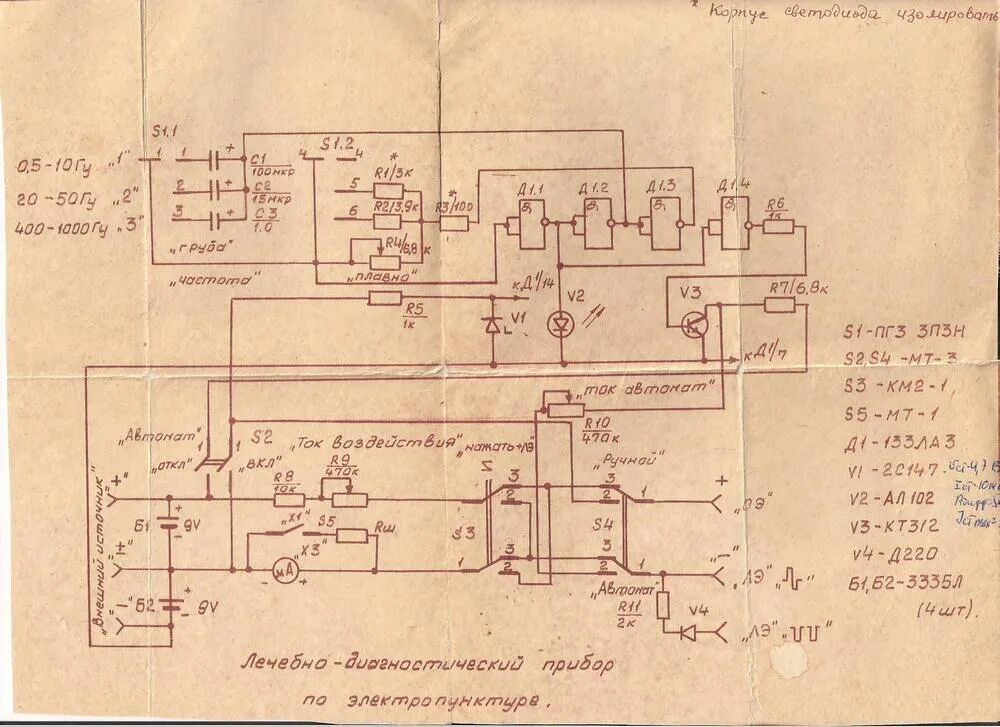 * Корпус светодиода изолировать
S1.1
0,5-10Гц „1"
20-50Гц „2"
400-1000Гц „3"
1
2
3
+
+
+
C1
100мкр
C2
15мкр
C3
1.0
„груба"
„частота"
4
S1.2
4
5
6
*
R1/3к
R2/3,9к
R4/6,8к
„плавно"
*
R3/100
Д1.1
Д1.2
Д1.3
Д1.4
&
&
&
&
R6
1к
R5
1к
к Д1/14
V1
V2
V3
R7/6,8к
к Д1/7
„ток автомат"
R10
470к
„Автомат"
„откл"
1
1
S2
„ВКЛ"
„Ток воздействия"
„нажать+ЛЭ"
R8
10к
R9
470к
„Х1"
S5
Rш
„Х3"
-
μA
+
S3
1
1
3
2
3
2
„Ручной"
S4
3
2
3
2
1
1
„Автомат"
R11
2к
V4
+
„ОЭ"
„-"
„ЛЭ"
„ЛЭ"
„Внешний источник"
„+"
„-"
Б1
+
-
9V
Б2
+
-
9V
S1-ПГ3 3П3Н
S2,S4-МТ-3
S3-КМ2-1,
S5-МТ-1
Д1-133ЛА3
V1-2С147
V2-АЛ102
V3-КТ312
V4-Д220
Б1,Б2-3335Л
(4шт).
Лечебно-диагностический прибор
по электропунктуре.